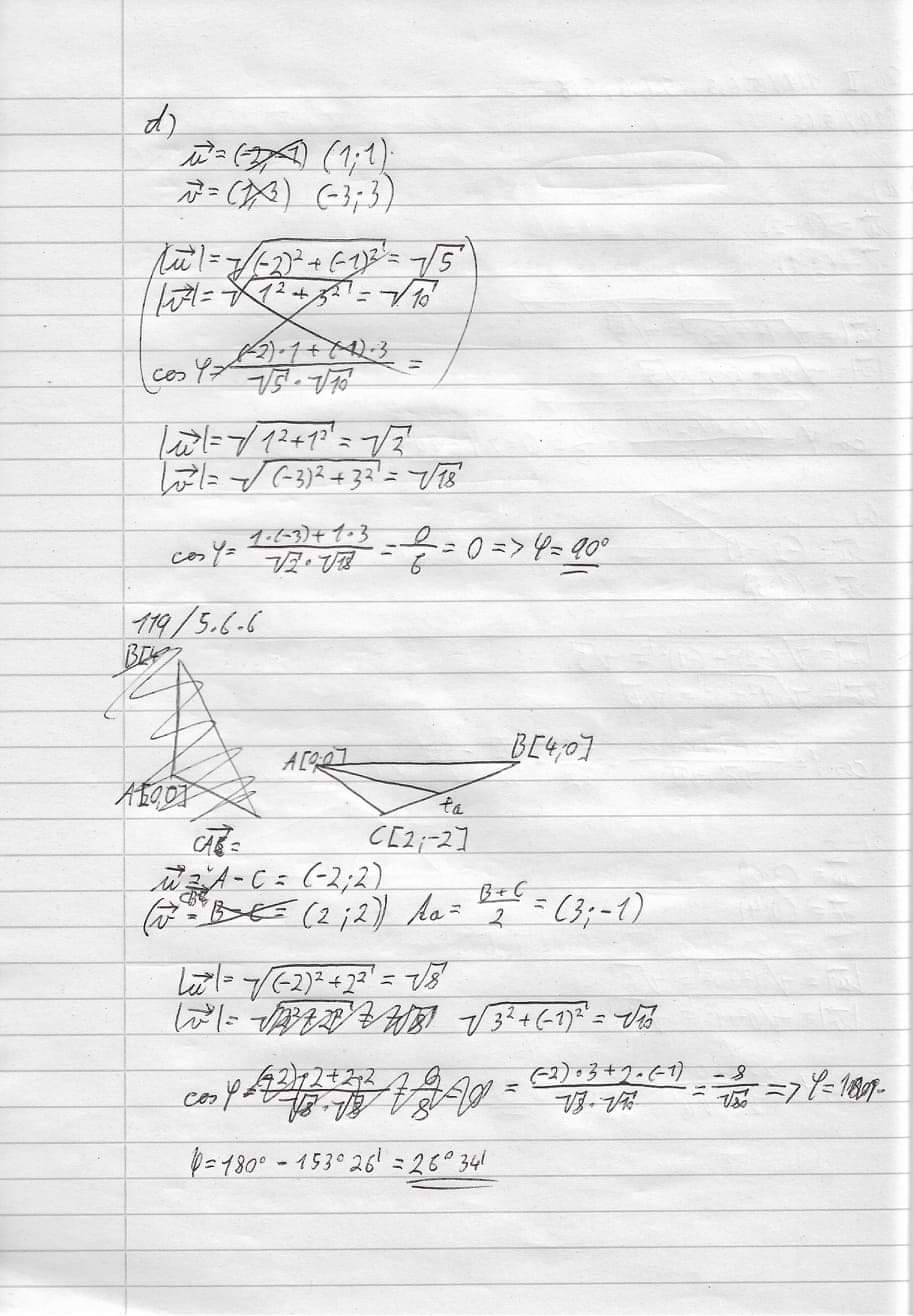 d)
u⃗ = (-2,-1) (1;1)
v⃗ = (1,3) (-3;3)
|u⃗| = √((-2)² + (-1)²) = √5
|v⃗| = √(1² + 3²) = √10
cos φ = ((-2)·1 + (-1)·3)/(√5 · √10) =
|u⃗| = √(1² + 1²) = √2
|v⃗| = √((-3)² + 3²) = √18
cos φ = (1·(-3) + 1·3)/(√2 · √18) = 0/6 = 0 => φ = 90°
119/5.6.6
B[4
A[0,0]
A[0;0] B[4;0]
tₐ
C[2;-2]
u⃗ = A - C = (-2;2)
(v⃗ = B - C = (2;2)) Aₐ = (B+C)/2 = (3;-1)
|u⃗| = √((-2)² + 2²) = √8
|v⃗| = √(2² + 2²) = √8 √(3² + (-1)²) = √10
cos φ = ((-2)·2 + 2·2)/(√8 · √8) = 0/8 = 0 = ((-2)·3 + 2·(-1))/(√8 · √10) = -8/√80 => φ =
φ = 180° - 153° 26' = 26° 34'